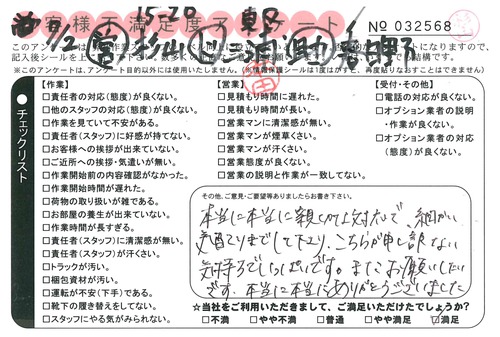 お客様不満足度アンケート
15-20
No 032568
7/2
このアンケートは
記入後シールを上
※このアンケートは、アンケート目的以外には使用いたしません。
チェックリスト
【作業】
□責任者の対応(態度)が良くない。
□他のスタッフの対応(態度)が良くない。
□作業を見ていて不安がある。
□責任者(スタッフ)に好感が持てない。
□お客様への挨拶が出来ていない。
□ご近所への挨拶・気遣いが無い。
□作業開始前の内容確認がなかった。
□作業開始時間が遅れた。
□荷物の取り扱いが雑である。
□お部屋の養生が出来ていない。
□作業時間が長すぎる。
□責任者(スタッフ)に清潔感が無い。
□責任者(スタッフ)が汗くさい。
□トラックが汚い。
□梱包資材が汚い。
□運転が不安(下手)である。
□靴下の履き替えをしてない。
□スタッフにやる気がみられない。
【営業】
□見積もり時間に遅れた。
□見積もり時間が長い。
□営業マンに清潔感が無い。
□営業マンが煙草くさい。
□営業マンが汗くさい。
□営業態度が良くない。
□営業の説明と作業が一致してない。
【受付・その他】
□電話の対応が良くない。
□オプション業者の説明
・作業が良くない。
□オプション業者の対応
(態度)が良くない。
その他、ご意見・ご要望等ありましたらお書き下さい。
本当に本当に親切な対応で、細かい
気配りまでして下さり、こちらが申し訳ない
気持ちでいっぱいです。またお願いしたい
です。本当に本当にありがとうございました
☆当社をご利用いただきまして、ご満足いただけたでしょうか?
□不満 □やや不満 □普通 □やや満足 □満足